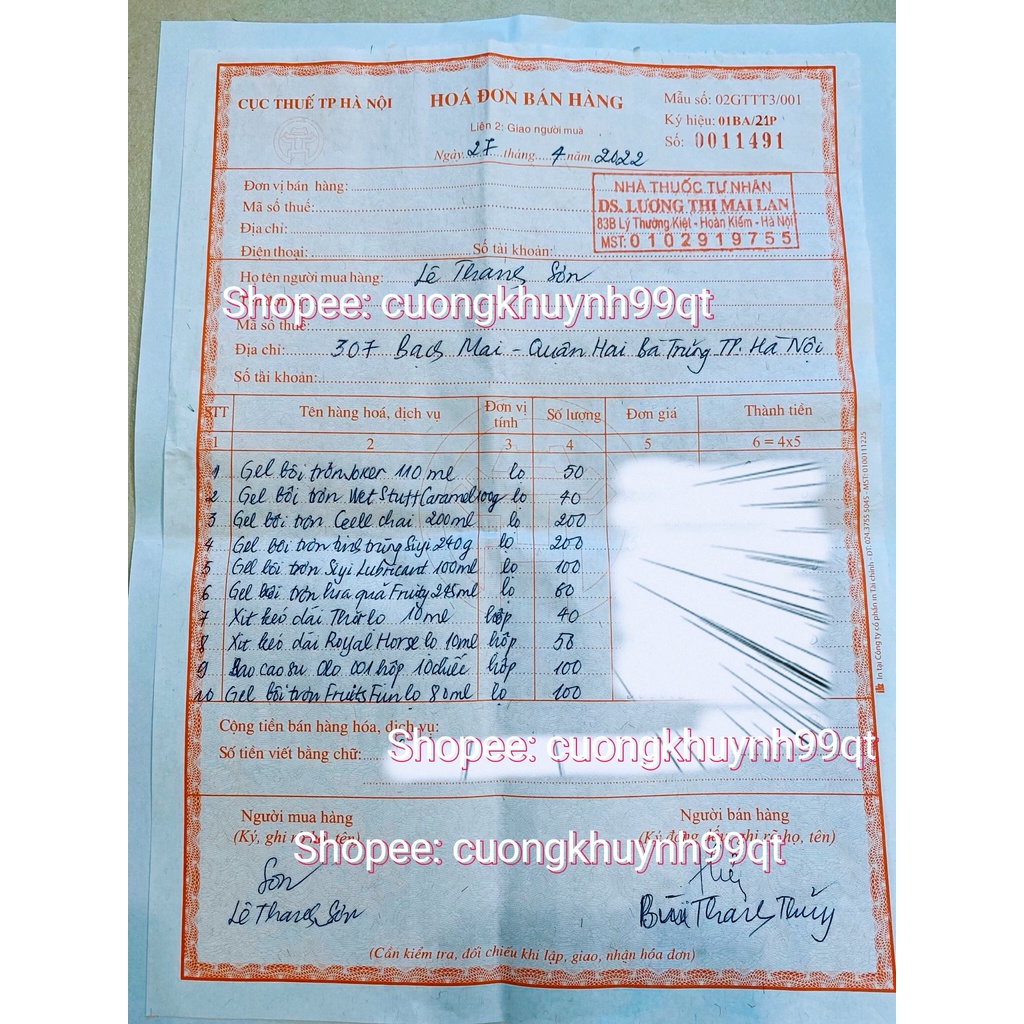 CỤC THUẾ TP HÀ NỘI
HOÁ ĐƠN BÁN HÀNG
Mẫu số: 02GTTT3/001
Liên 2: Giao người mua
Ký hiệu: 01BA/21P
Số: 0011491
Ngày 27 tháng 4 năm 2022
Đơn vị bán hàng:
Mã số thuế:
Địa chỉ:
Điện thoại: Số tài khoản:
NHÀ THUỐC TƯ NHÂN
DS. LƯƠNG THỊ MAI LAN
83B Lý Thường Kiệt - Hoàn Kiếm - Hà Nội
MST: 0102919755
Họ tên người mua hàng: Lê Thanh Sơn
Shopee: cuongkhuynh99qt
Mã số thuế:
Địa chỉ: 307 Bạch Mai - Quận Hai Bà Trưng TP. Hà Nội
Số tài khoản:
STT Tên hàng hoá, dịch vụ Đơn vị tính Số lượng Đơn giá Thành tiền
1 2 3 4 5 6 = 4x5
1 Gel bôi trơn Joker 110 ml lọ 50
2 Gel bôi trơn Wet Stuff Caramel 100g lọ 40
3 Gel bôi trơn Ceell chai 200ml lọ 200
4 Gel bôi trơn tinh trùng Siyi 240g lọ 200
5 Gel bôi trơn Siyi Lubricant 100ml lọ 100
6 Gel bôi trơn hoa quả Fruity 245ml lọ 60
7 Xịt kéo dài lọ 10ml hộp 40
8 Xịt kéo dài Royal Horse lọ 10ml hộp 50
9 Bao cao su Olo 001 hộp 10 chiếc hộp 100
10 Gel bôi trơn Fruits Fun lọ 80ml lọ 100
Cộng tiền bán hàng hóa, dịch vụ:
Shopee: cuongkhuynh99qt
Số tiền viết bằng chữ:
Người mua hàng Người bán hàng
(Ký, ghi rõ họ, tên) (Ký đóng dấu, ghi rõ họ, tên)
Shopee: cuongkhuynh99qt
Sơn
Lê Thanh Sơn
Bùi Thanh Thủy
(Cần kiểm tra, đối chiếu khi lập, giao, nhận hóa đơn)
In tại Công ty cổ phần in Tài chính - ĐT: 024.3755 5045 - MST: 0100111225